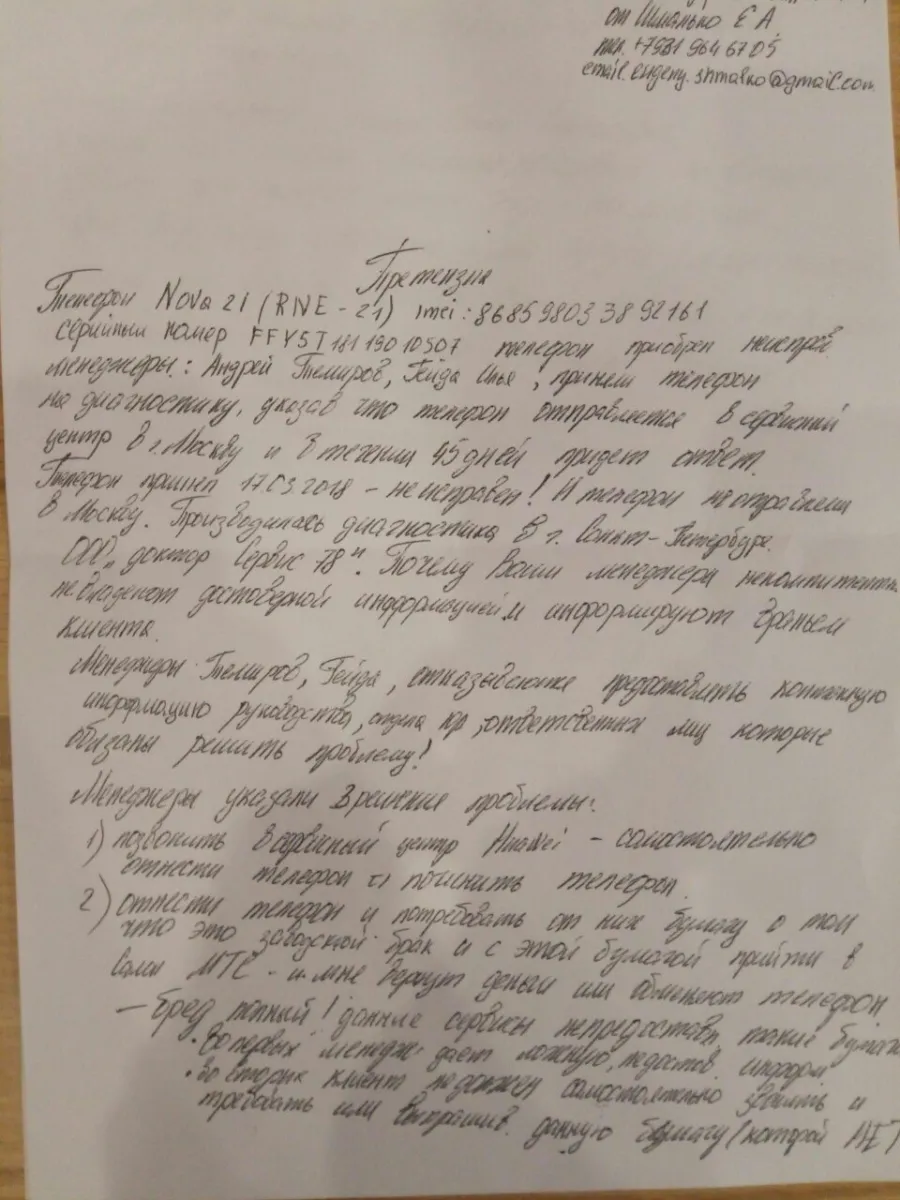 от Шмалько Е А
тел. +7981 964 67 05
email. evgeny.shmalko@gmail.com
Претензия
Телефон Nova 2i (RNE - 21) imei: 868598033892161
серийный номер FFY5T18119010507 телефон приобрел неисправ.
менеджеры: Андрей Темиров, Гейда Илья, приняли телефон
на диагностику, указав что телефон отправляется в сервисный
центр в г. Москву и в течении 45 дней придет ответ.
Телефон пришел 17.03.2018 - неисправен! И телефон не отправляли
в Москву. Производилась диагностика в г. Санкт-Петербург.
ООО „доктор Сервис 78". Почему Ваши менеджера некомпитентн.
не владеют достоверной информацией и информируют враньем
клиента.
Менеджеры Темиров, Гейда, отказываются предоставлять контактную
информацию руководства, отдела юр, ответственных лиц которые
обязаны решить проблему!
Менеджеры указали 2 решение проблемы:
1) позвонить в сервисный центр Huawei - самостоятельно
отнести телефон и починить телефон.
2) отнести телефон и потребовать от них бумагу о том
что это заводской брак и с этой бумагой прийти в
салон МТС - и мне вернут деньги или обменяют телефон
- бред полный! данные сервисы непредоставл. такие бумаги
• во первых менедж. дает ложную, недостов. информ
• во вторых клиент не должен самостоятельно звонить и
требовать или выпрашив. данную бумагу (которой НЕТ